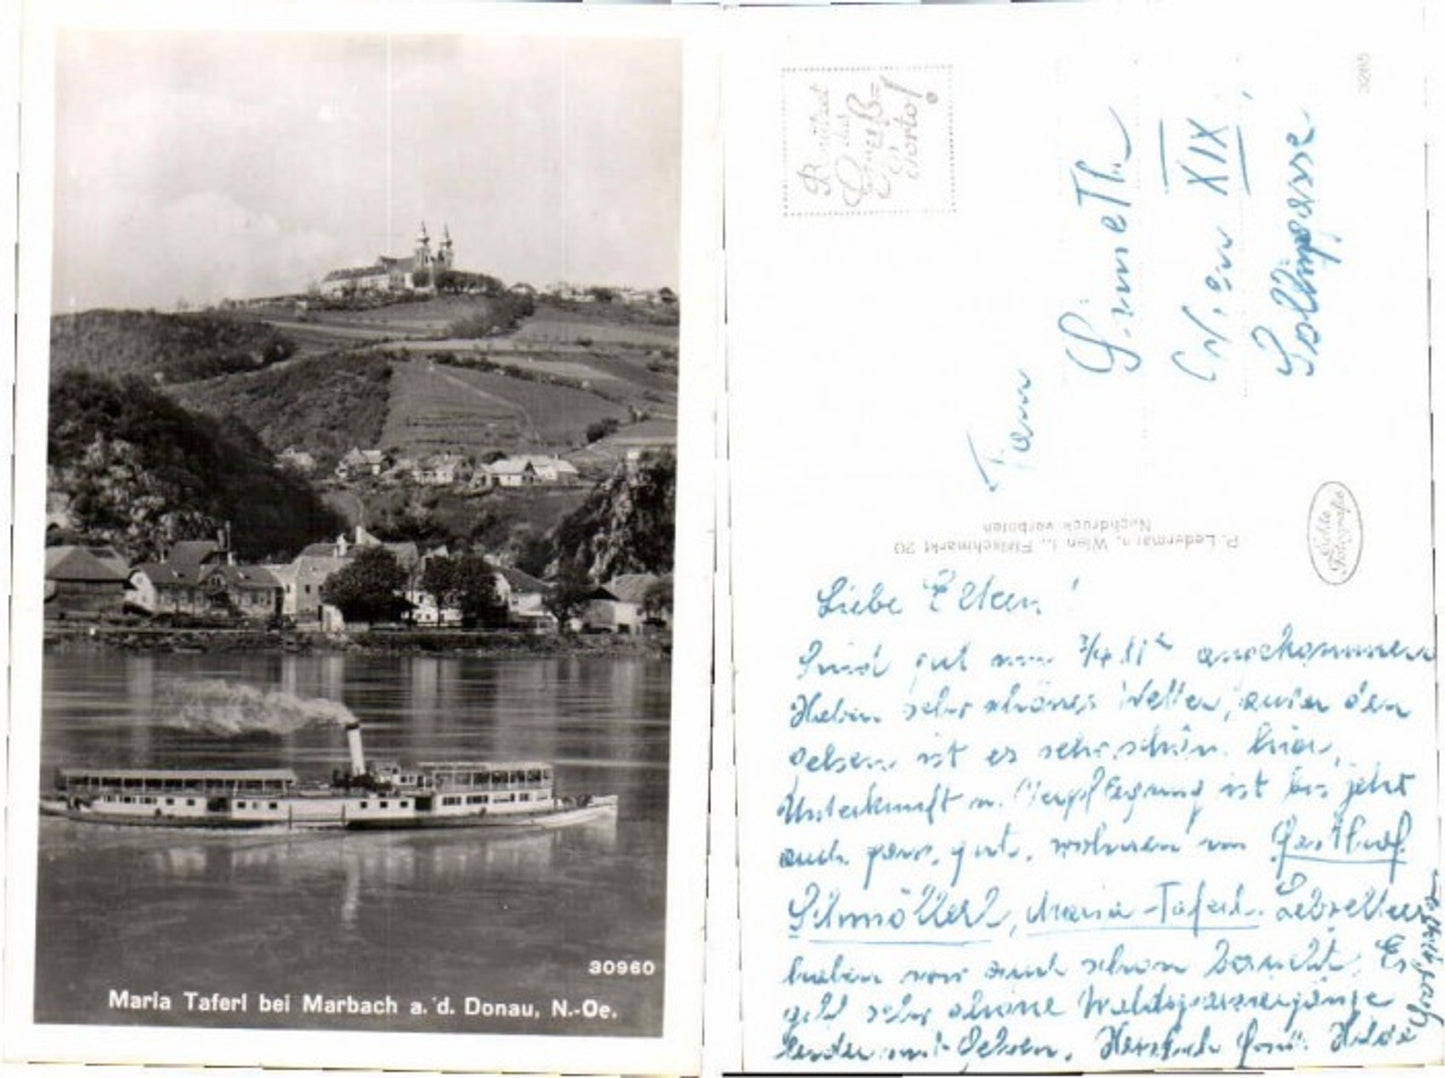 30960
Maria Taferl bei Marbach a. d. Donau, N.-Oe.
3265
das
Gruß=
porto!
Fam
Wien XIX
P. Ledermann, Wien I., Fleischmarkt 20
Nachdruck verboten
Echte
Fotografie
Liebe Eltern!
Sind gut um 3/4 11h angekommen
Haben sehr schönes Wetter, auser den
ist es sehr schön hier,
Unterkunft u. Verpflegung ist bis jetzt
auch ganz gut, wohnen im Gasthof
Maria-Taferl. Lebzelter
haben wir auch schon besucht. Es
gibt sehr schöne Waldspaziergänge
leider mit Gelsen. Herzlich